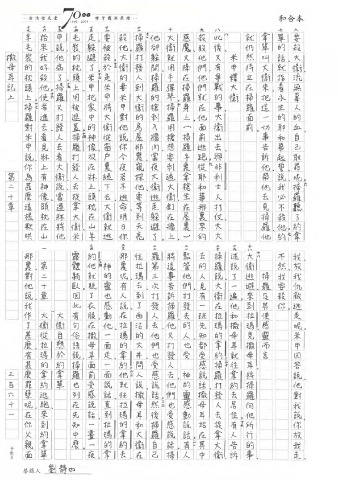 和合本
70
要殺大衛流無辜人的血自己取罪呢掃羅聽了約拿
單的話就指着永生的耶和華起誓說我必不殺他約
拿單叫大衛來把這一切事告訴他帶他去見掃羅他
就仍然侍立在掃羅面前
米甲救大衛
此後又有爭戰的事大衛出去與非利士人打仗大大
殺敗他們他們就在他面前逃跑從耶和華那裏來的
惡魔又降在掃羅身上掃羅手裏拿槍坐在屋裏
大衛就用手彈琴掃羅用槍想要刺透大衛釘在牆上
他卻躲開掃羅的槍刺入牆內當夜大衛逃走躲避了
掃羅打發人到大衛的房屋那裏窺探他要等到天亮
殺他大衛的妻米甲對他說你今夜若不逃命明日你
要被殺於是米甲將大衛從窗戶裏縋下去大衛就逃
走躲避了米甲把家中的神像放在牀上頭枕在山羊
毛裝的枕頭上用被遮蓋掃羅打發人去捉拿大衛米
甲說他病了掃羅又打發人去看大衛說當連牀將他
抬來我好殺他使者進去看見牀上有神像頭枕在山
羊毛裝的枕頭上掃羅對米甲說你為甚麼這樣欺哄
我放我仇敵逃走呢米甲回答說他對我說你放我走
不然我要殺你
大衛逃避來到拉瑪見撒母耳將掃羅向他所行的事
述說了一遍他和撒母耳就往拿約去居住有人告訴
掃羅說大衛在拉瑪的拿約掃羅打發人去捉拿大衛
去的人見有一班先知都受感說話撒母耳站在其中
監管他們打發去的人也受 神的靈感動說話有人
將這事告訴掃羅他又打發人去他們也受感說話掃羅
第三次打發人去他們也受感說話然後掃羅自己
往拉瑪去到了西沽的大井問人說撒母耳和大衛在
那裏有人說在拉瑪的拿約他就往拉瑪的拿約去
神的靈也感動他一面走一面說話直到拉瑪的拿
約他就脫了衣服在撒母耳面前受感說話一晝一夜
露體躺臥因此有句俗語說掃羅也列在先知中麼
第二十章
大衛從拉瑪的拿約逃跑來到約拿單
那裏對他說我作了甚麼有甚麼罪孽呢在你父親面
撒母耳記上
第二十章
三百六十一